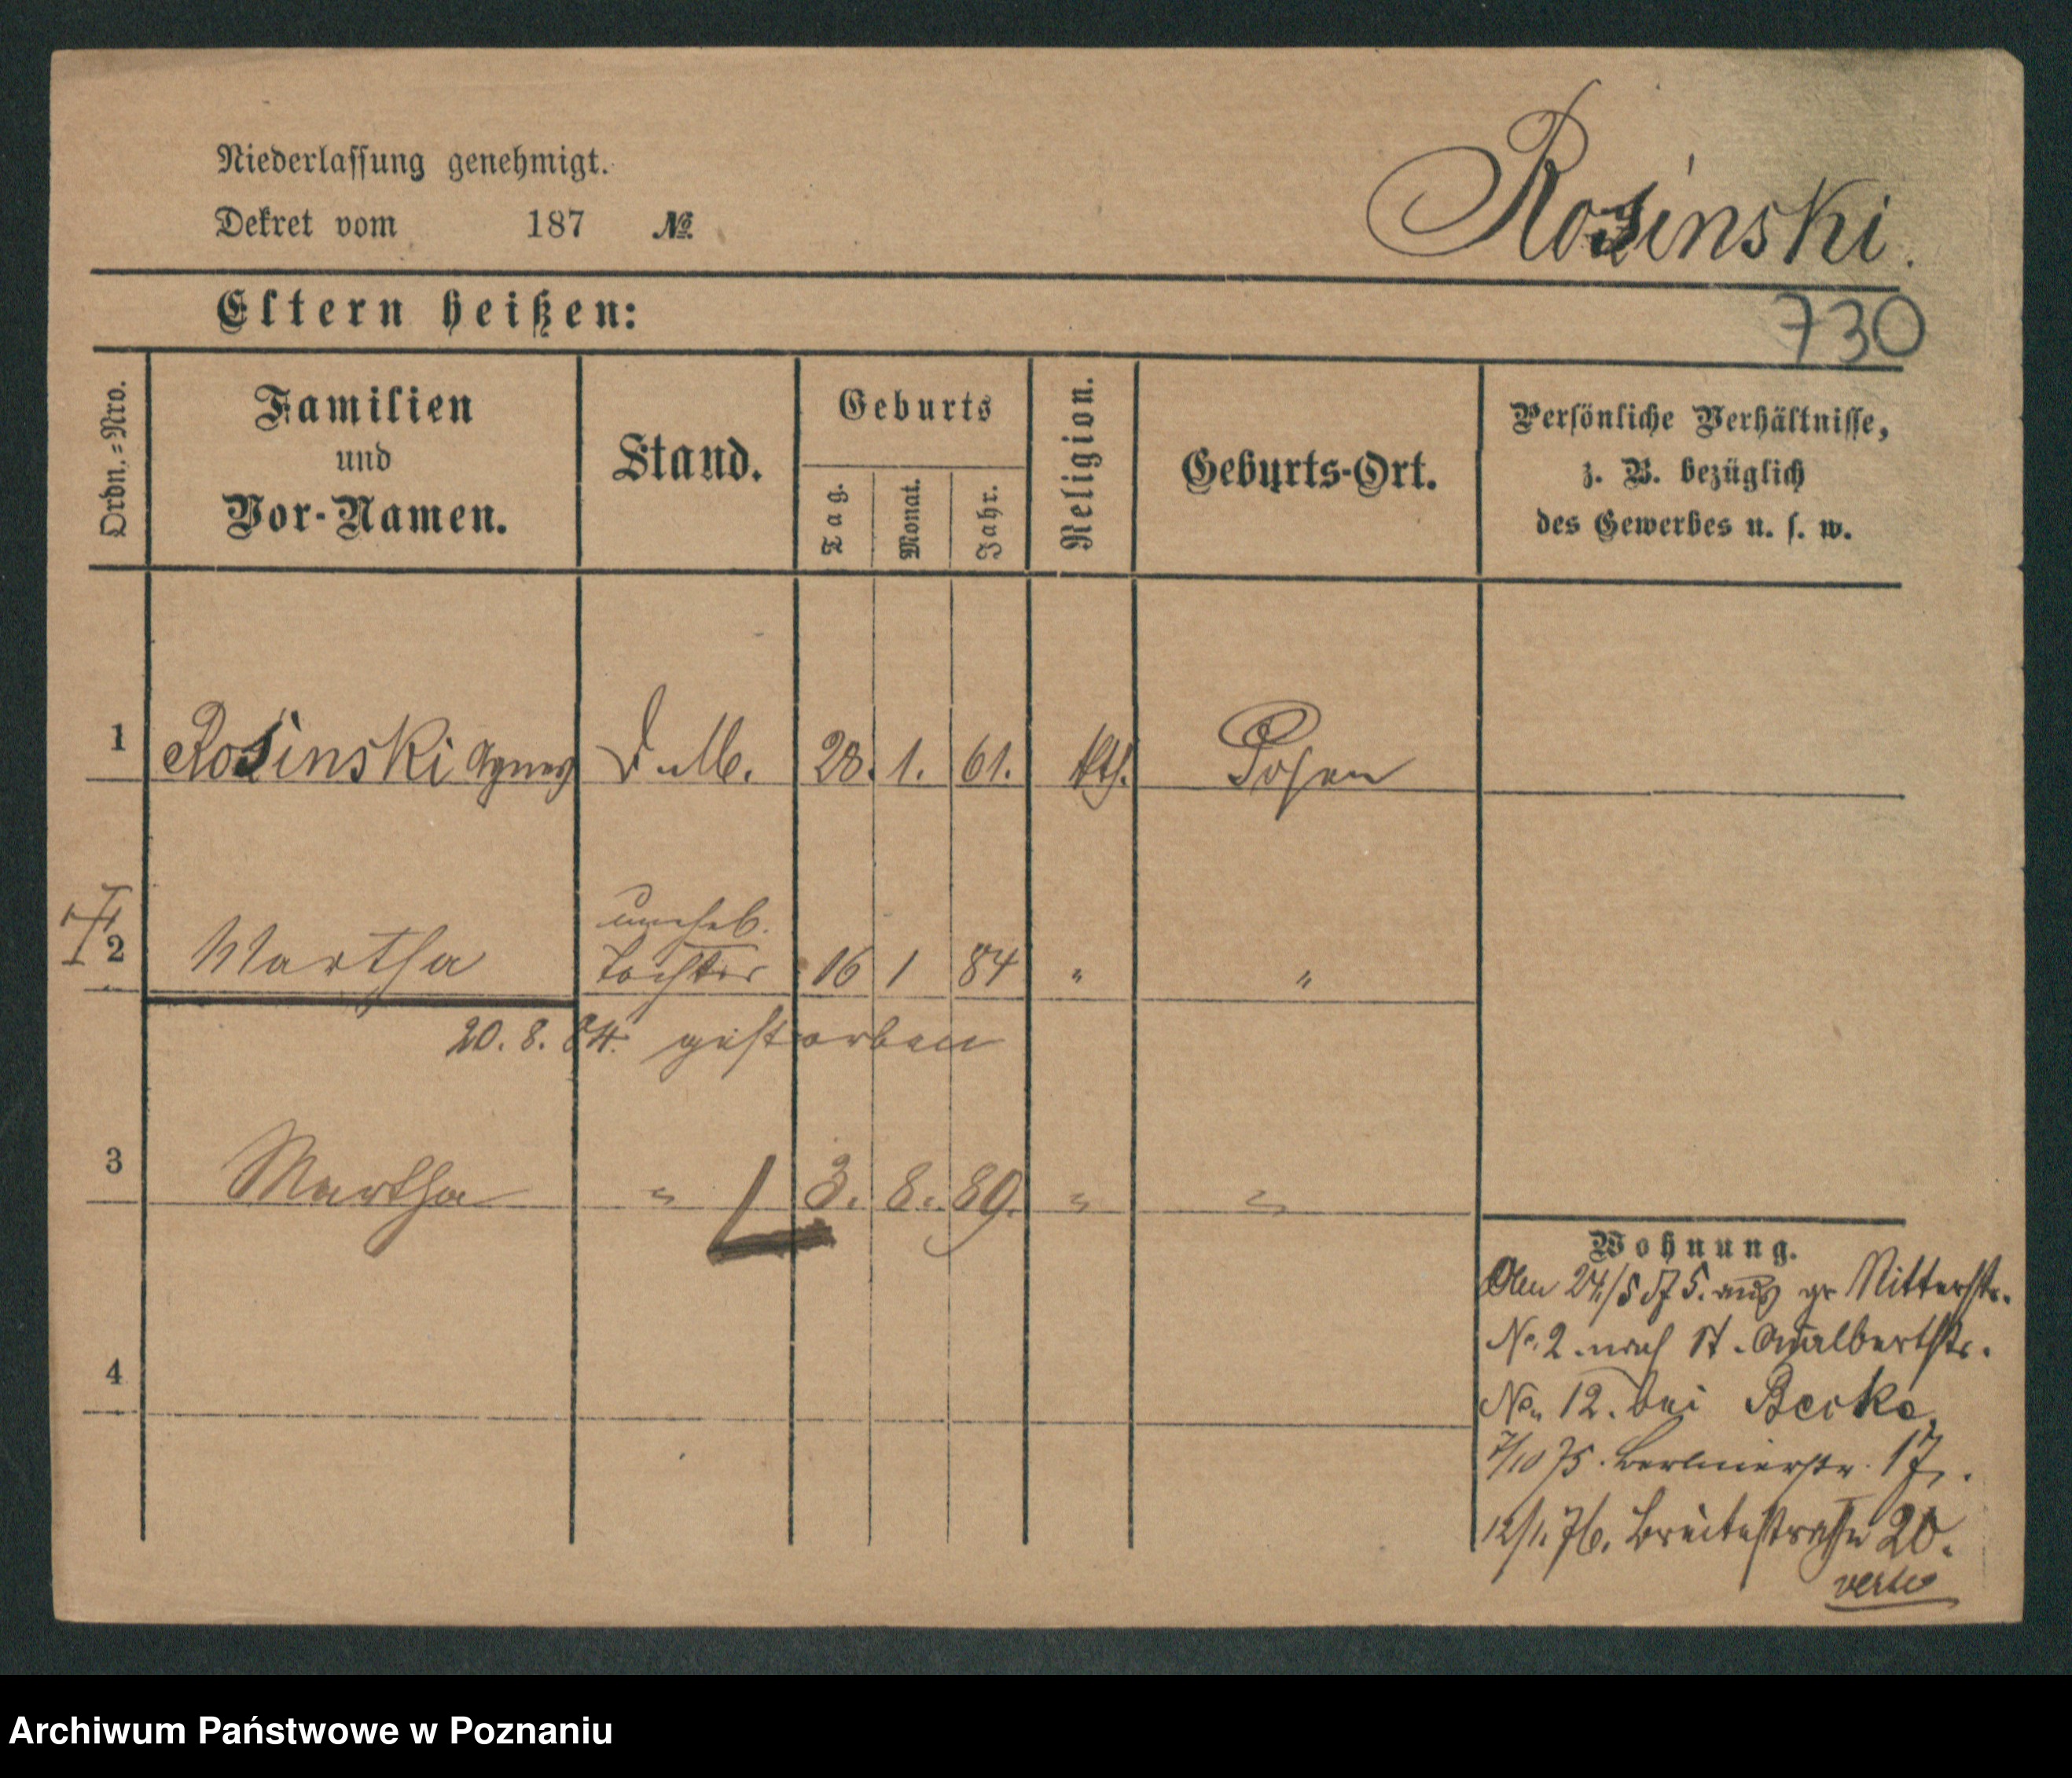 Niederlassung genehmigt.
Dekret vom 187 №
Rosinski.
Eltern heißen:
730
Ordn.=Nro.
Familien
und
Vor-Namen.
Stand.
Geburts
Tag.
Monat.
Jahr.
Religion.
Geburts-Ort.
Persönliche Verhältnisse,
z. B. bezüglich
des Gewerbes u. s. w.
1 Rosinski Agnes D. M. 28. 1. 61. kth. Posen
uneheb.
2 Martha Tochter 16 1 84 " "
20. 8. 84. gestorben
3 Martha " 3. 8. 89. " "
4
Wohnung.
24/5 75. aus gr Ritterstr.
No. 2 nach St. Adalbertstr.
No. 12. bei
7/10 75. Berlinerstr. 17.
12/1. 76. Breitestraße 20.
verte
Archiwum Państwowe w Poznaniu